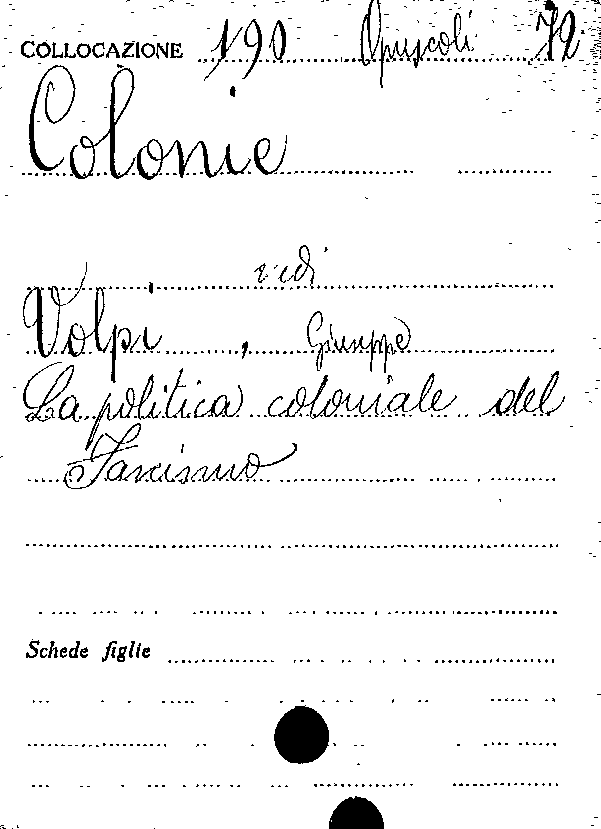 COLLOCAZIONE 190 Opuscoli 72
Colonie
vedi
Volpi, Giuseppe
La politica coloniale del
Fascismo
Schede figlie